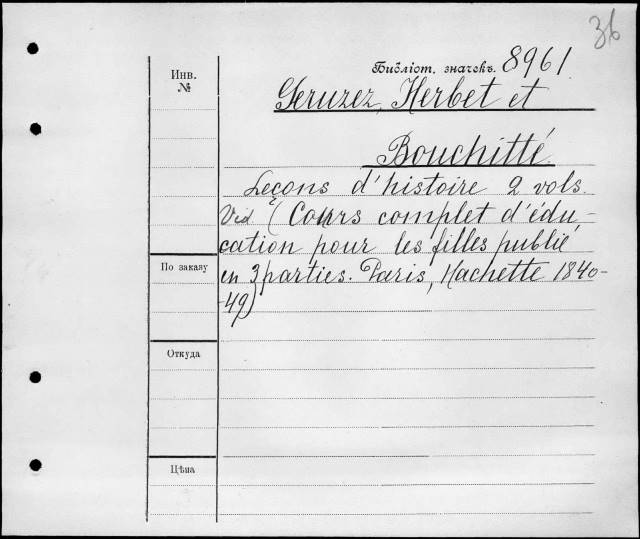 36
Библіот. значекъ. 8961
Инв.
№
Geruzez, Herbet et
Bouchitté.
Leçons d'histoire 2 vols.
Vid. (Cours complet d'édu-
cation pour les filles publié
en 3 parties. Paris, Hachette 1840-
-49)
По заказу
Откуда
Цѣна